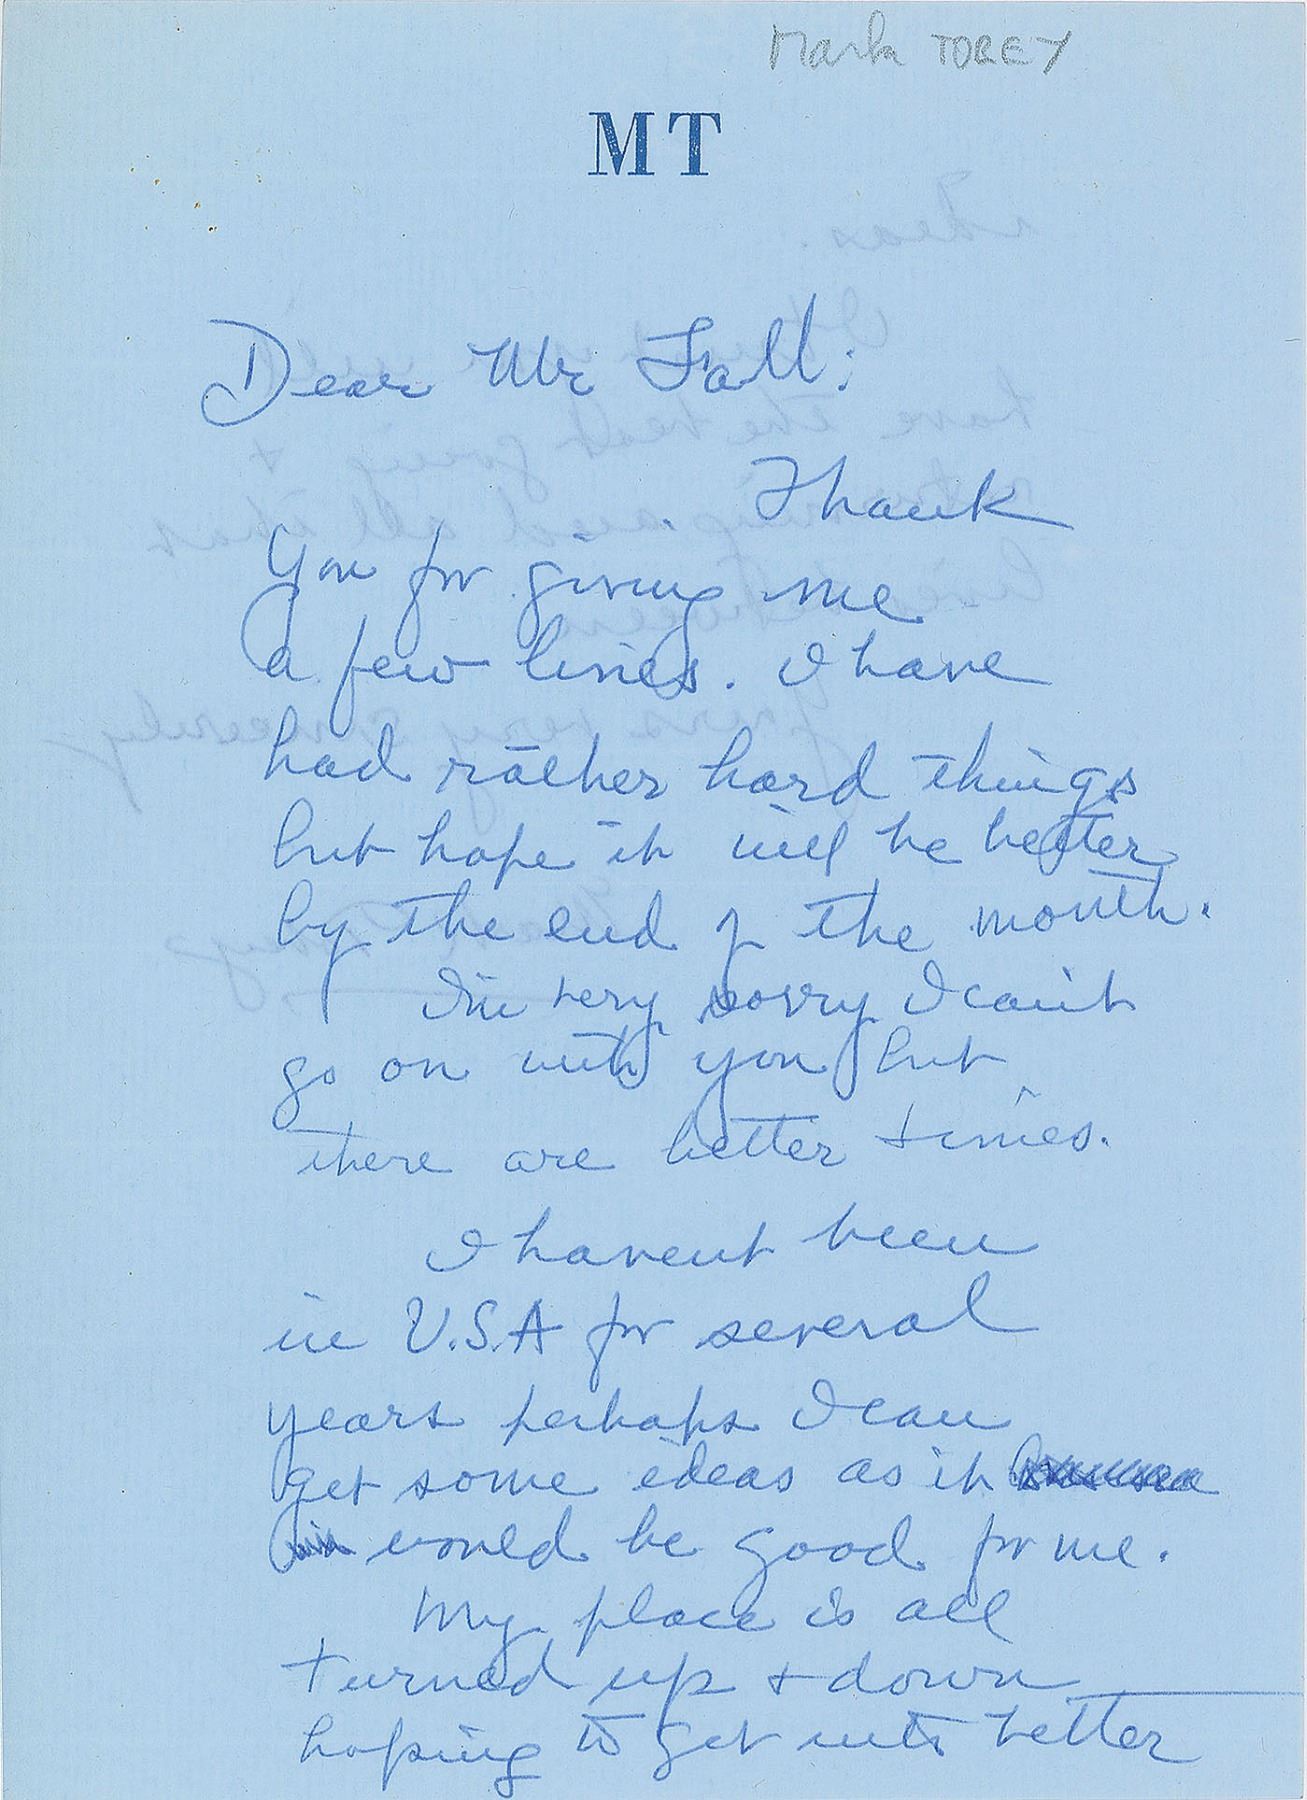 Mark TOBEY
MT
Dear Mr Fall:
Thank
You for giving me
a few lines. I have
had rather hard things
but hope it will be better
by the end of the month.
I'm very sorry I can't
go on with you but
there are better times.
I havent been
in U.S.A for several
years perhaps I can
get some ideas as it
would be good for me.
My place is all
turned up + down
hoping to get into better